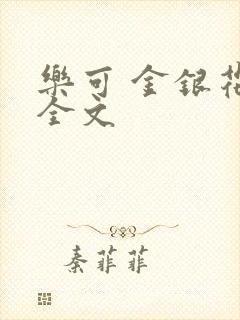 樂可 金銀花
全文
秦菲菲